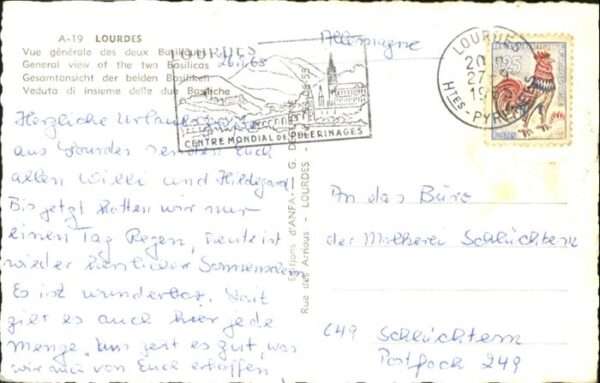 A-19 LOURDES
Vue générale des deux Basiliques
General view of the two Basilicas
Gesamtansicht der beiden Basiliken
Veduta di insieme delle due Basiliche
26.9.65
LOURDES
CENTRE MONDIAL DE PELERINAGES
Allemagne
LOURDES
20
27-9
19
Htes-PYRENEES
0,25
Herzliche Urlaubsgrüße
aus Lourdes senden Euch
allen Willi und Hildegard!
Bis jetzt hatten wir nur
einen Tag Regen, heute ist
wieder herrlicher Sonnenschein
Es ist wunderbar. Wait
gibt es auch hier jede
Menge. Uns geht es gut, was
wir auch von Euch erhoffen
Editions d'ART
Rue des Arrious - LOURDES
An das Büro
der Molkerei Schlüchtern
649 Schlüchtern
Postfach 249